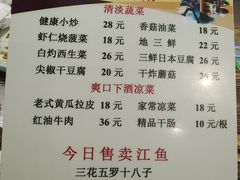 清淡蔬菜
健康小炒 28元 香菇油菜 18元
虾仁烧菠菜 28元 地三鲜 22元
白灼西生菜 26元 三鲜日本豆腐 26元
尖椒干豆腐 20元 干炸蘑菇 26元
爽口下酒凉菜
老式黄瓜拉皮 18元 家常凉菜 18元
红油牛肉 36元 精品干肠 10元/根
今日售卖江鱼
三花五罗十八子